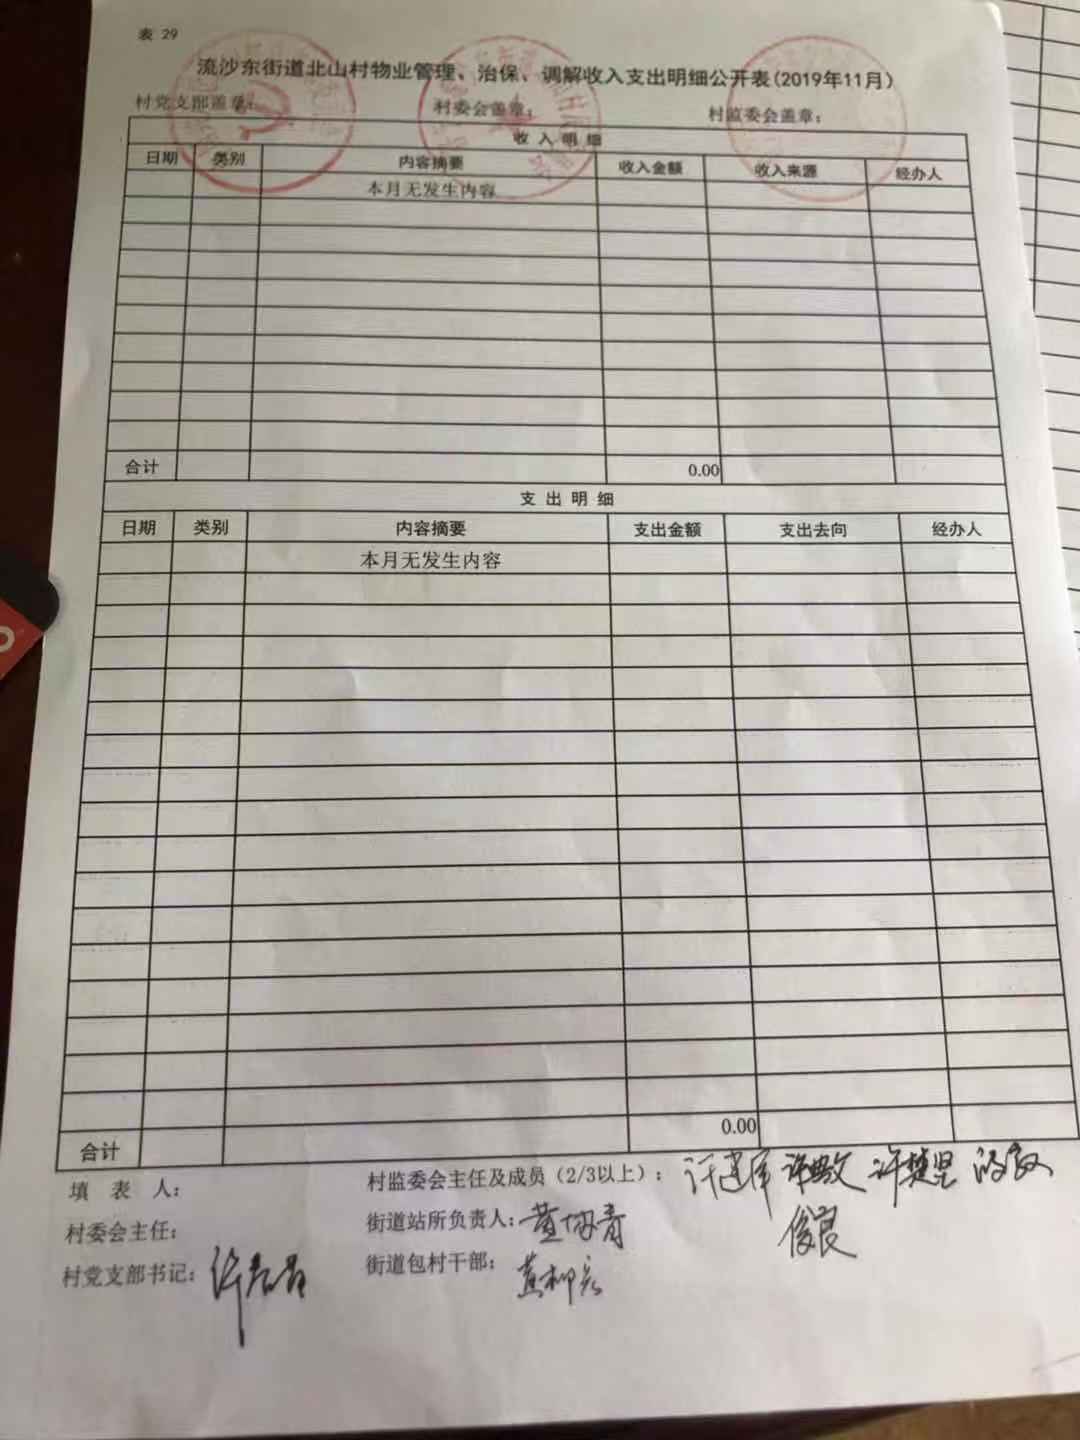 表 29
流沙东街道北山村物业管理、治保、调解收入支出明细公开表(2019年11月)
村党支部盖章: 村委会盖章: 村监委会盖章:
收 入 明 细
日期 类别 内容摘要 收入金额 收入来源 经办人
本月无发生内容
合计 0.00
支 出 明 细
日期 类别 内容摘要 支出金额 支出去向 经办人
本月无发生内容
合计 0.00
填 表 人: 村监委会主任及成员（2/3以上）:
村委会主任: 街道站所负责人: 俊良
村党支部书记: 街道包村干部: